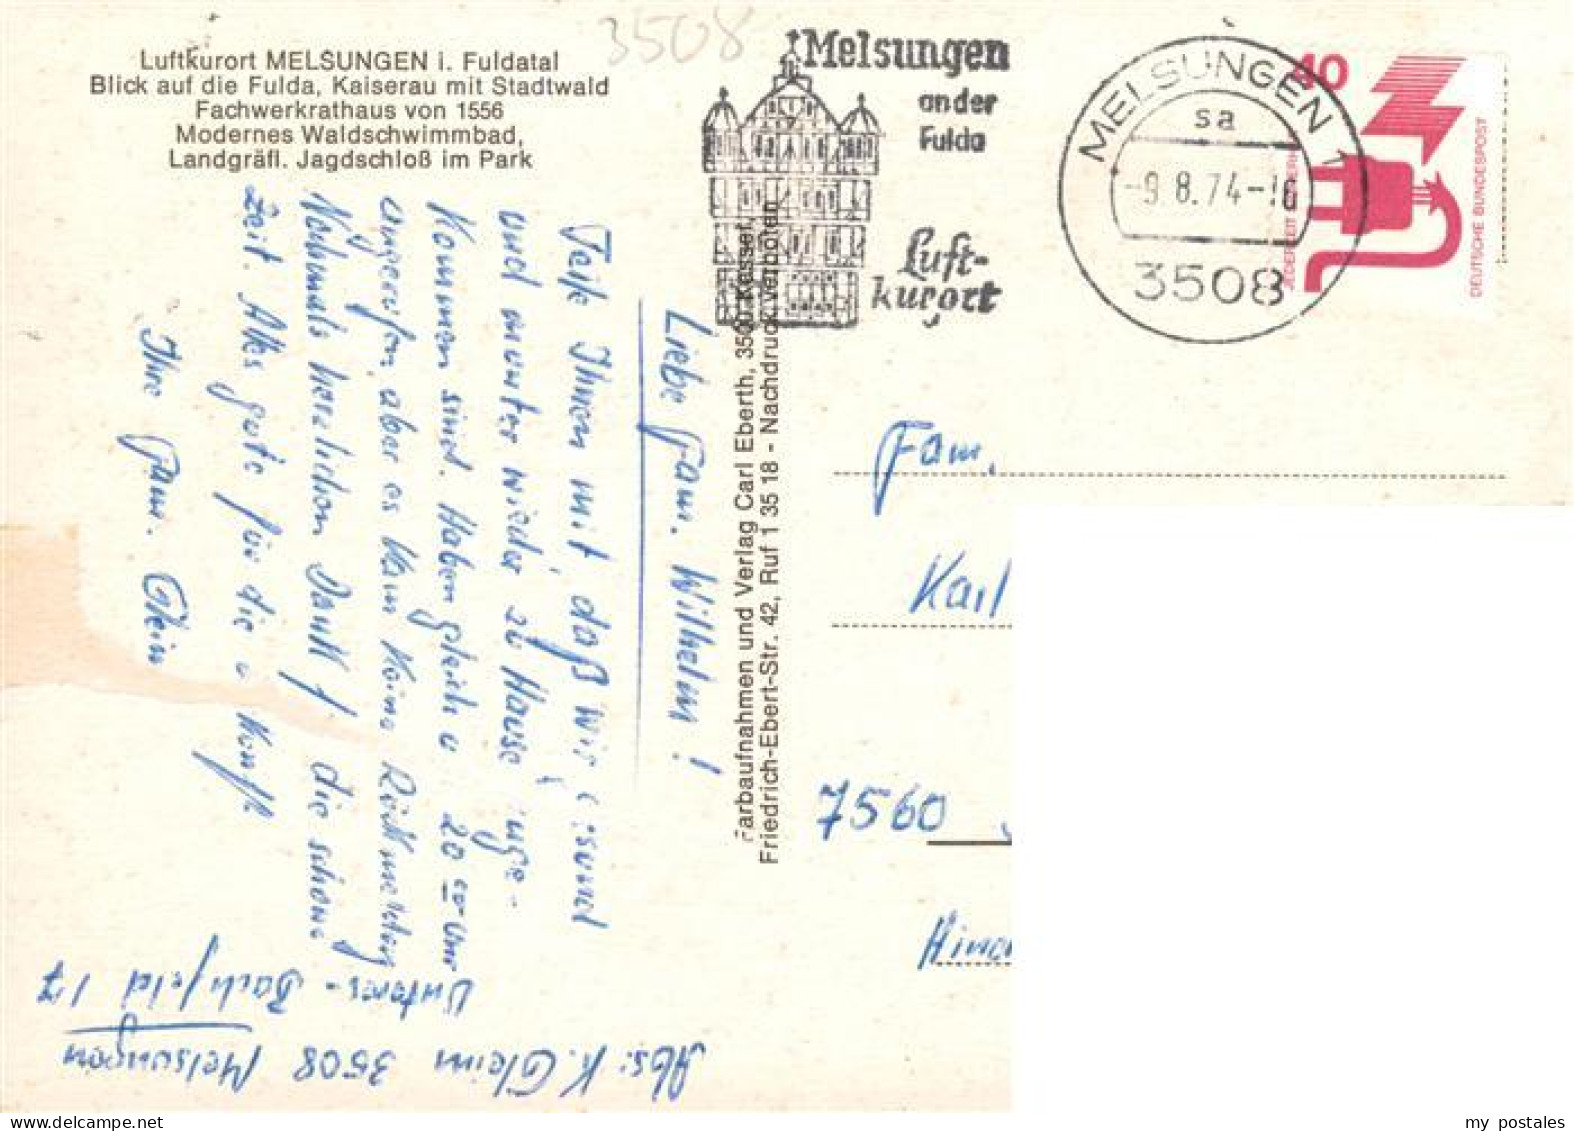 3508
Luftkurort MELSUNGEN i. Fuldatal
Blick auf die Fulda, Kaiserau mit Stadtwald
Fachwerkrathaus von 1556
Modernes Waldschwimmbad,
Landgräfl. Jagdschloß im Park
Melsungen
an der
Fulda
Luft-
kurort
MELSUNGEN 1
sa
-9.8.74-16
3508
40
JEDERZEIT SICHERHEIT
DEUTSCHE BUNDESPOST
Liebe Fam. Wilhelm!
Teile Ihnen mit, daß wir gesund
und munter wieder zu Hause ange-
kommen sind. Haben gleich 20 00 Uhr
angerufen aber es kam keine Rückmeldung
Nochmals herzlichen Dank f. die schöne
Zeit. Alles gute für die
Ihre Fam. Gleim
Abs: K. Gleim 3508 Melsungen
Unteres-Bachfeld 17
Farbaufnahmen und Verlag Carl Eberth, 3500 Kassel,
Friedrich-Ebert-Str. 42, Ruf 1 35 18 - Nachdruck verboten
Fam.
Karl
7560
my postales